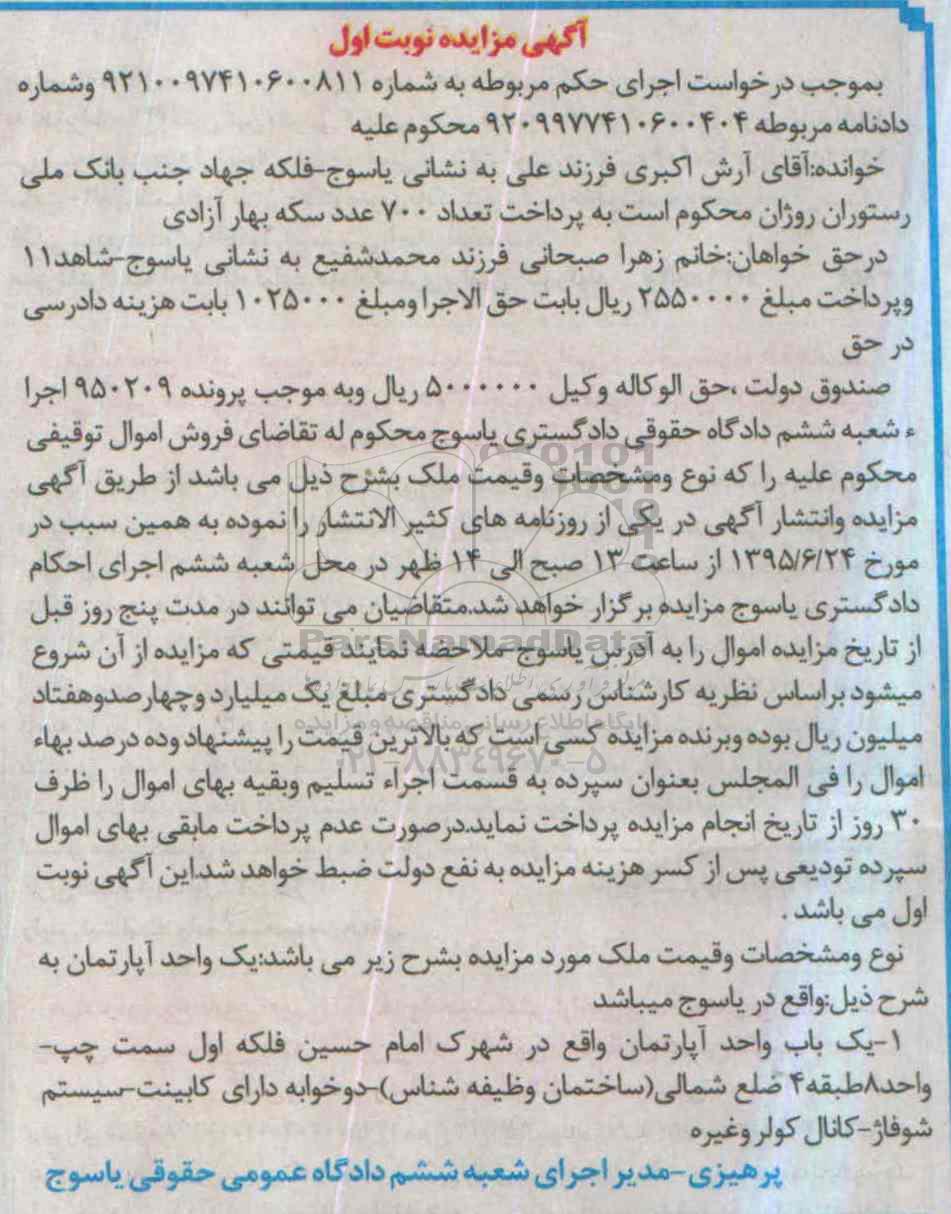 آگهی مزایده نوبت اول
بموجب درخواست اجرای حکم مربوطه به شماره ۹۲۱۰۰۹۷۴۱۰۶۰۰۸۱۱ وشماره
دادنامه مربوطه ۹۲۰۹۹۷۷۴۱۰۶۰۰۴۰۴ محکوم علیه
خوانده:آقای آرش اکبری فرزند علی به نشانی یاسوج-فلکه جهاد جنب بانک ملی
رستوران روژان محکوم است به پرداخت تعداد ۷۰۰ عدد سکه بهار آزادی
درحق خواهان:خانم زهرا صبحانی فرزند محمدشفیع به نشانی یاسوج-شاهد۱۱
وپرداخت مبلغ ۲۵۵۰۰۰۰ ریال بابت حق الاجرا ومبلغ ۱۰۲۵۰۰۰ بابت هزینه دادرسی
در حق
صندوق دولت ،حق الوکاله وکیل ۵۰۰۰۰۰۰ ریال وبه موجب پرونده ۹۵۰۲۰۹ اجرا
ء شعبه ششم دادگاه حقوقی دادگستری یاسوج محکوم له تقاضای فروش اموال توقیفی
محکوم علیه را که نوع ومشخصات وقیمت ملک بشرح ذیل می باشد از طریق آگهی
مزایده وانتشار آگهی در یکی از روزنامه های کثیر الانتشار را نموده به همین سبب در
مورخ ۱۳۹۵/۶/۲۴ از ساعت ۱۳ صبح الی ۱۴ ظهر در محل شعبه ششم اجرای احکام
دادگستری یاسوج مزایده برگزار خواهد شد.متقاضیان می توانند در مدت پنج روز قبل
از تاریخ مزایده اموال را به آدرس یاسوج-ملاحضه نمایند قیمتی که مزایده از آن شروع
میشود براساس نظریه کارشناس رسمی دادگستری مبلغ یک میلیارد وچهارصدوهفتاد
میلیون ریال بوده وبرنده مزایده کسی است که بالاترین قیمت را پیشنهاد وده درصد بهاء
اموال را فی المجلس بعنوان سپرده به قسمت اجراء تسلیم وبقیه بهای اموال را ظرف
۳۰ روز از تاریخ انجام مزایده پرداخت نماید.درصورت عدم پرداخت مابقی بهای اموال
سپرده تودیعی پس از کسر هزینه مزایده به نفع دولت ضبط خواهد شد.این آگهی نوبت
اول می باشد .
نوع ومشخصات وقیمت ملک مورد مزایده بشرح زیر می باشد:یک واحد آپارتمان به
شرح ذیل:واقع در یاسوج میباشد
۱-یک باب واحد آپارتمان واقع در شهرک امام حسین فلکه اول سمت چپ-
واحد۸طبقه۴ ضلع شمالی(ساختمان وظیفه شناس)-دوخوابه دارای کابینت-سیستم
شوفاژ-کانال کولر وغیره
پرهیزی-مدیر اجرای شعبه ششم دادگاه عمومی حقوقی یاسوج
ParsNamadData
پایگاه اطلاع رسانی مناقصه و مزایده
۰۲۱-۸۸۳۴۹۶۷۰-۵